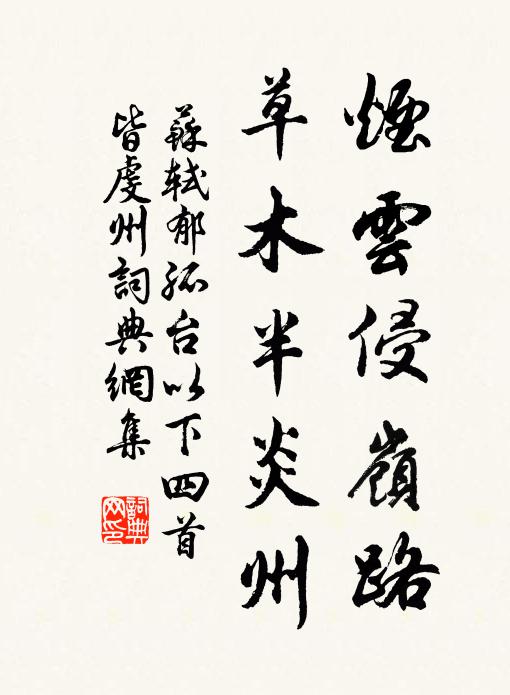 煙雲侵嶺路
草木半炎州
蘇軾郁孤台以下四首
皆虔州詞典網集
詞典
网印